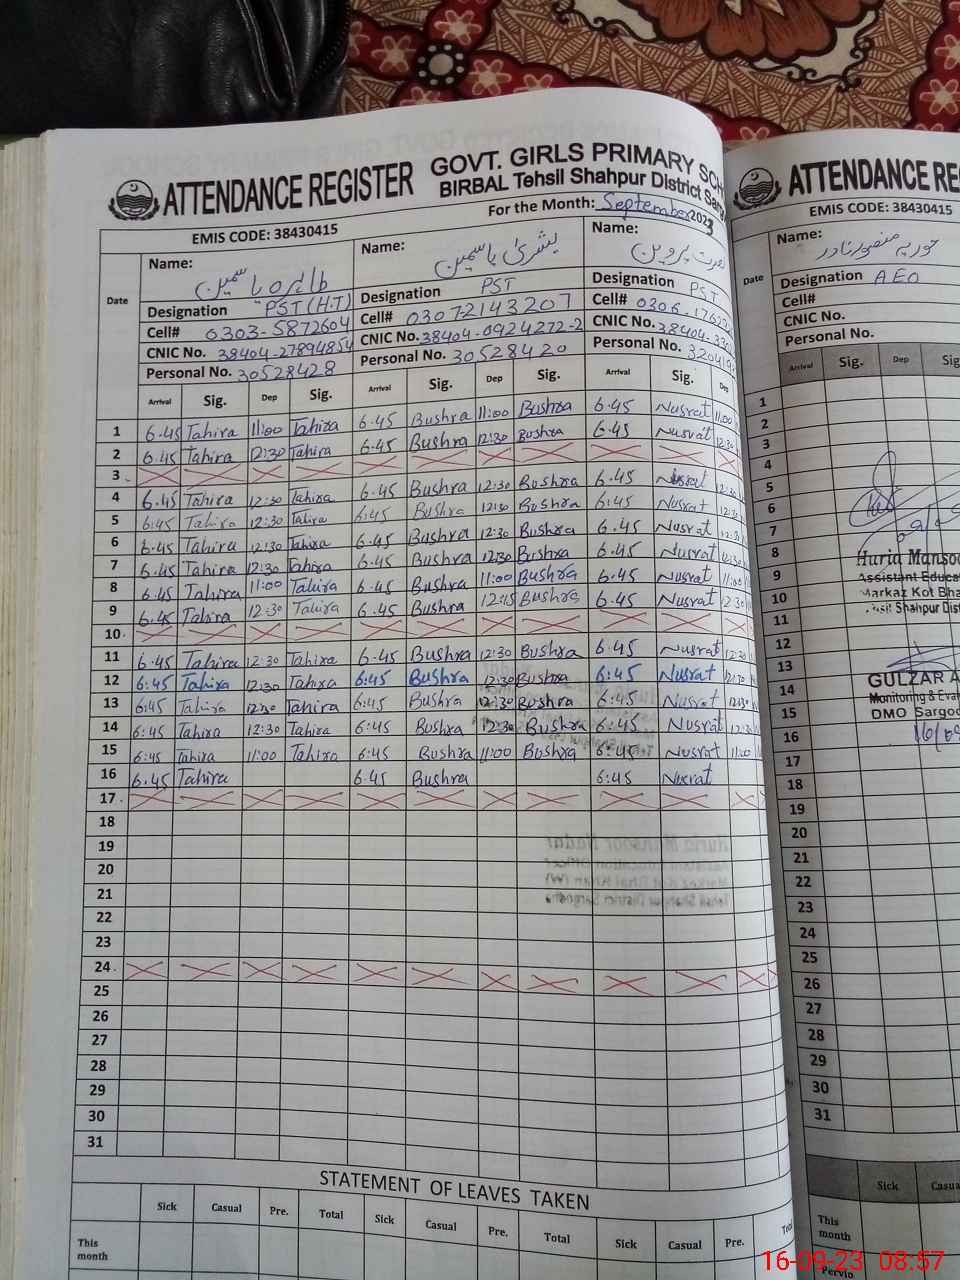 ATTENDANCE REGISTER
GOVT. GIRLS PRIMARY SCH
BIRBAL Tehsil Shahpur District Sarg
For the Month: September 2023
EMIS CODE: 38430415
Date
Name: طاہرہ یاسمین
Designation PST (H.T)
Cell# 0303-5872604
CNIC No. 38404-2789485
Personal No. 30528428
Name: بشریٰ یاسمین
Designation PST
Cell# 03072143207
CNIC No. 38404-0924272-2
Personal No. 30528420
Name: نصرت پروین
Designation PST
Cell# 0306-176
CNIC No. 38404-33
Personal No. 32041
Arrival Sig. Dep Sig. Arrival Sig. Dep Sig. Arrival Sig. Dep
1 6.45 Tahira 11:00 Tahira 6.45 Bushra 11:00 Bushra 6.45 Nusrat 11:00
2 6.45 Tahira 12:30 Tahira 6.45 Bushra 12:30 Bushra 6.45 Nusrat 12:30
3
4 6.45 Tahira 12:30 Tahira 6.45 Bushra 12:30 Bushra 6.45 Nusrat 12:30
5 6:45 Tahira 12:30 Tahira 6:45 Bushra 12:30 Bushra 6:45 Nusrat 12:30
6 6.45 Tahira 12:30 Tahira 6.45 Bushra 12:30 Bushra 6.45 Nusrat 12:30
7 6.45 Tahira 12:30 Tahira 6.45 Bushra 12:30 Bushra 6.45 Nusrat 12:30
8 6.45 Tahira 11:00 Tahira 6.45 Bushra 11:00 Bushra 6.45 Nusrat 11:00
9 6.45 Tahira 12:30 Tahira 6.45 Bushra 12:15 Bushra 6.45 Nusrat 12:30
10
11 6.45 Tahira 12:30 Tahira 6.45 Bushra 12:30 Bushra 6.45 Nusrat 12:30
12 6:45 Tahira 12:30 Tahira 6:45 Bushra 12:30 Bushra 6:45 Nusrat 12:30
13 6:45 Tahira 12:30 Tahira 6:45 Bushra 12:30 Bushra 6:45 Nusrat 12:30
14 6:45 Tahira 12:30 Tahira 6:45 Bushra 12:30 Bushra 6:45 Nusrat 12:30
15 6:45 Tahira 11:00 Tahira 6:45 Bushra 11:00 Bushra 6:45 Nusrat 11:00
16 6.45 Tahira 6:45 Bushra 6:45 Nusrat
17
18
19
20
21
22
23
24
25
26
27
28
29
30
31
STATEMENT OF LEAVES TAKEN
Sick Casual Pre. Total Sick Casual Pre. Total Sick Casual Pre. Total
This month
ATTENDANCE RE
EMIS CODE: 38430415
Date
Name: حوریہ منصور نادر
Designation AEO
Cell#
CNIC No.
Personal No.
Arrival Sig. Dep Sig
1
2
3
4
5
6
7
8
9
10
11
12
13
14
15
16
17
18
19
20
21
22
23
24
25
26
27
28
29
30
31
Huria Mansoo
Assistant Educa
Markaz Kot Bha
Tehsil Shahpur Dist
GULZAR A
Monitoring & Eva
DMO Sargoo
16/09
Sick Casua
This month
Pervio
16-09-23 08:57